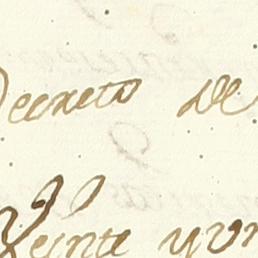 Decreto de
Veinte y un